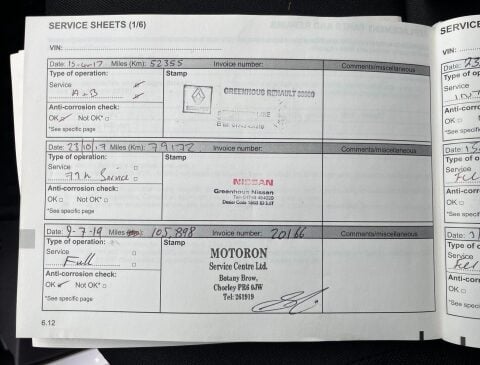 SERVICE SHEETS (1/6)
VIN:
Date: 15-4-17 Miles (Km): 52355 Invoice number: Comments/miscellaneous
Type of operation: Stamp
Service
A+B
GREENHOUS RENAULT
Anti-corrosion check:
OK Not OK*
*See specific page
Date: 23/10/17 Miles (Km): 79172 Invoice number: Comments/miscellaneous
Type of operation: Stamp
Service
Service
NISSAN
Greenhous Nissan
Anti-corrosion check:
OK Not OK*
*See specific page
Date: 9-7-19 Miles 105,898 Invoice number: 20166 Comments/miscellaneous
Type of operation: Stamp
Service
Full
MOTORON
Service Centre Ltd.
Botany Brow,
Chorley PR6 0JW
Tel: 261919
Anti-corrosion check:
OK Not OK*
*See specific page
6.12
SERVIC
VIN:
Date:
Type of
Service
Anti-corr
OK
*See spec
Date:
Type of
Service
Full
Anti-corr
OK
*See spec
Date:
Type of
Service
Full
Anti-corr
OK
*See spec